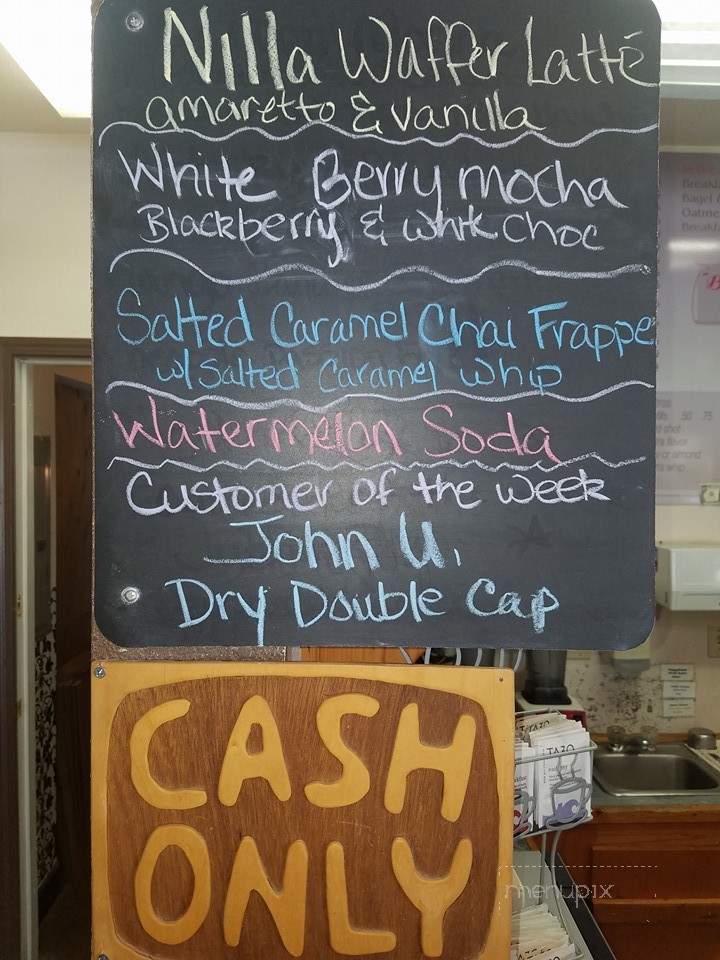 Nilla Waffer Latté
amaretto & vanilla
White Berry mocha
Blackberry & white choc
Salted Caramel Chai Frappe
w/ Salted Caramel whip
Watermelon Soda
Customer of the week
John U.
Dry Double Cap
CASH
ONLY
TAZO
menupix